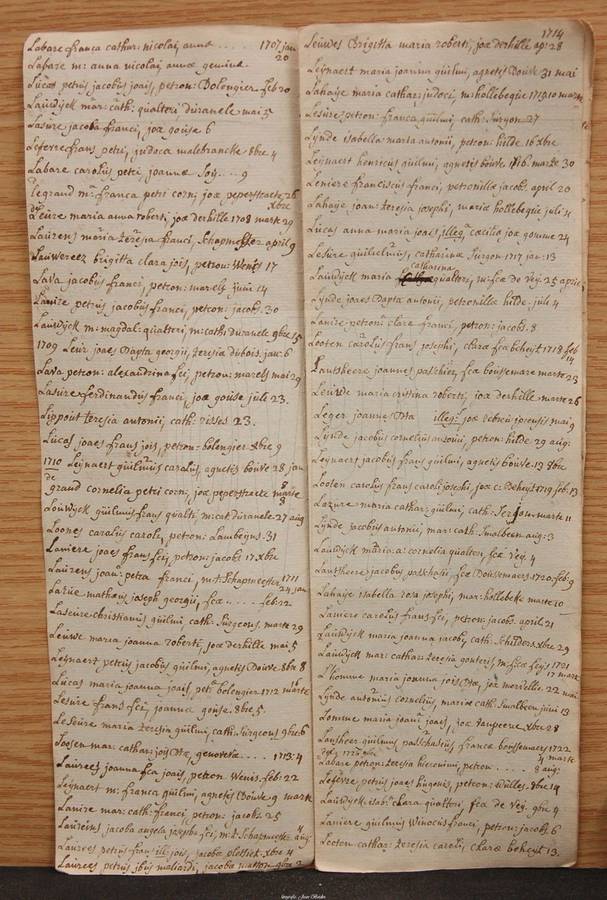 Labare franca cathar: nicolaj anna .... 1707 jan
20
Labare m: anna nicolaj anna gemina
Lucas petrus jacobus joais, petron: Bolengier feb 20
Lauwdijck mar: cath: qualteri duranele mai 5
Lasure jacoba franci, joæ gouse 6
Lefevre frans petri, judoca malebrancke 8bre 4
Labare carolus petri joanna Soij ... 9
Legrand m: franca petri corni joæ peperstraete 26
xbre
Leure maria anna roberti, joæ derhille 1708 marte 29
Laurens maria teresia franci, Schapmester april 9
Lauwereez brigitta clara jois, petron: Wenis 17
Lava jacobus franci, petron: marels junii 14
Laniere petrus jacobus franci, petron: jacobs. 30
Lauwdyck m: magdal: qualteri, m: cath: duranele 9bre 15
1709 Leur joaes Bapta georgii, teresia dubois jan: 6
Lava petron: alexandrina fci, petron: marels mai 29
Lasure ferdinandus franci, joæ gouse juli 23.
Lippout teresia antonii, cath: visses 23.
Lucas joaes frans jois, petron: bolengier xbre 9
1710 Leijnaert guilmus carolus, agnetis bouve 28 jan
de
grand cornelia petri corni, joæ peperstraete marte
8
Louwdyck guilmus frans qualti m: cat duranele 27 aug
Loones carolus caroli, petron: Laubeyns. 31
Laniere joaes frans fci, petron: jacobs 17 xbre
Laurens joan: petra franci, m: t: Schapmester 1711
24 jan
Larue mathous joseph georgii, fca .... feb: 22
Laseure christianus guilmi cath: Surgeons marte 29
Leuwe maria joanna roberti, joæ derhille mai 5
Leijnaert petrus jacobus guilmi, agnetis Bouve 8bre 8
Lucas maria joanna joais, petr: bolengier 1712 marte
Lesure frans fci, joanna gouse 8bre 5
Leseure maria teresia guilmi, cath: Surgeons 9bre 6
Loosen mar: cathar: jois Bta, genoveva .... 1713: 4
Laurees joanna fca joais, petron: Wenis feb: 22
Leijnaert m: franca guilmi, agnetis Bouve 9 marte
Laniere mar: cath: franci, petron: jacobs 25
Laurens jacoba angela josepha fci, m: t: Schapmester 4 aug
Laurees petrus frans jois, jacoba plettiek xbre 4
Laurees petrus jbus maliardi, jacoba matton 9bre 2
1714
Leuwes Brigitta maria roberti, joæ derhille ap: 28
Leijnaert maria joanna guilmi, agnetis Bouve 31 mai
Lahaije maria cathar: judoci, m: hollebeque 1715 10 marte
Lesure petron: franca guilmi, cath: Surgon 27
Lynde isabella maria antonii, petron: hilde 16 xbre
Leijnaert henricus guilmi, agnetis bouve 1716. marte 30
Leniere franciscus franci, petronilla jacobs: april 20
Lahaije joan: teresia josephi, maria hollebeque juli 11
Lucas anna maria joais, illeg: cæcilia joæ gomme 24
Lesure guilielmus, catharina Surgon 1717 jan: 13
catharina
Lauwdyck maria qualteri, m: fca de Vey. 25 aprile
Lynde joaes Bapta antonii, petronilla hilde: juli 4
Laniere petron: clara franci, petron: jacobs. 8
Looten carolus frans josephi, clara fca beheyt 1718 feb
14
Lautsheere joannes paschier, fca boussemare marte 23
Leuwde maria cristina roberti, joæ derhille marte 26
Leger joannes Bta illeg: joæ Lebrus iprensis mai 9
Lynde jacobus cornelius antonii, petron: hilde 29 aug:
Leijnaert jacobus frans guilmi, agnetis bouve 13 8bre
Looten carolus frans caroli josephi, joæ c: Beheyt 1719 feb: 13
Lazure maria cathar: guilmi, cath: Sergeon marte 11
Lynde jacobus antonii, mar: cath: Smalbeen aug: 3
Lauwdyck maria: a: cornelia qualteri, fca vey. 4
Lautsheere jacobus paschasii, fca Boussemaers 1720 feb: 9
Lahaije isabella rosa josephi, mar: hollebeke marte 10
Laniere carolus frans fci, petron: jacobs. april 21
Lauwdyck maria joanna jacobi, cath: Schilders xbre 29
Lauwdyck mar: cathar: teresia gouteri, m: fca feys 1721
17 mare
L'homme maria joanna jois Bta, joæ merville. 22 mai
Lynde antonius cornelius, maria cath: Smalbeen junii 13
Lomme maria joani joais, joæ tampeere xbre 28
Lautheer guilmus paschasius franca boussemaers 1722
4 marte
Labare petron: teresia hieronimi, petron ..... 8 aug:
Lefevre petrus joaes hugonis, petron: Willes. 8bre 14
Lauwdyck isab: clara qualteri, fca de Vey. 9bre 4
Laniere guilmus Winocus franci, petron: jacobs 6
Looten cathar: teresia caroli, clara beheyt 13.